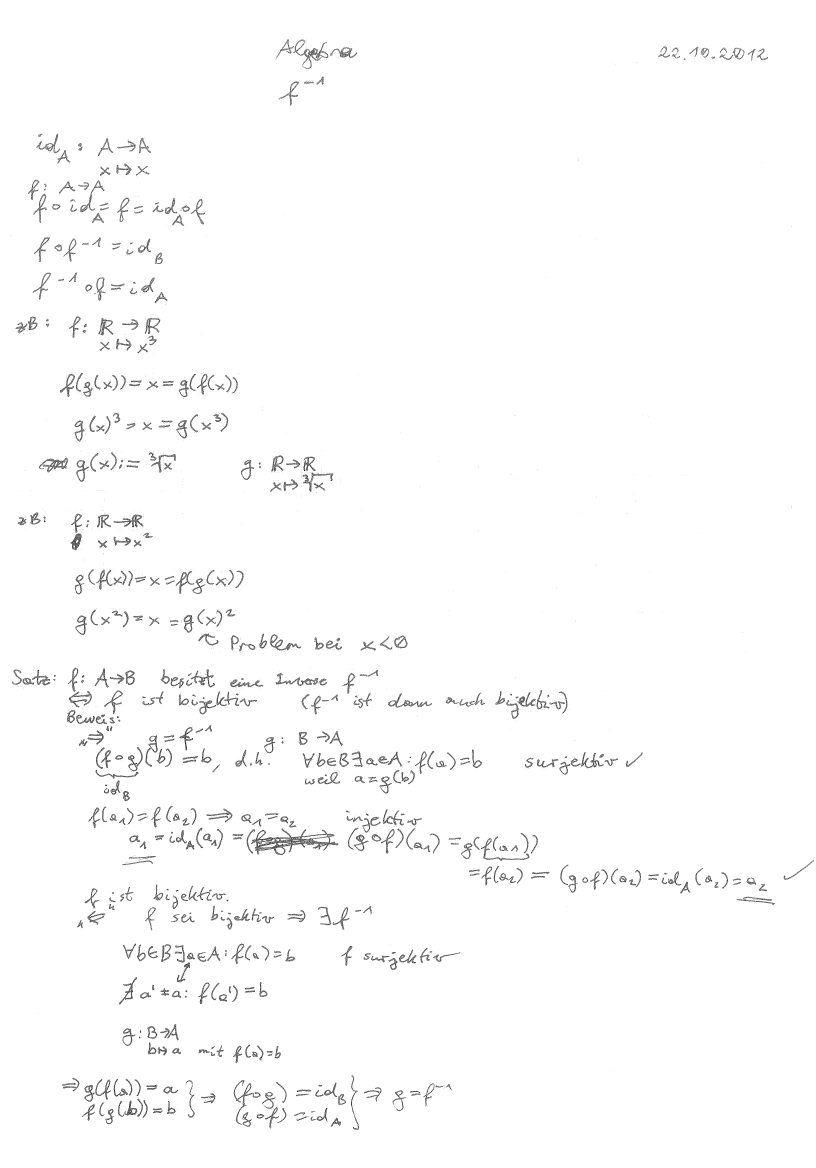 Algebra 22.10.2012
f⁻¹
id_A : A → A
x ↦ x
f: A → A
f ∘ id_A = f = id_A ∘ f
f ∘ f⁻¹ = id_B
f⁻¹ ∘ f = id_A
zB: f: ℝ → ℝ
x ↦ x³
f(g(x)) = x = g(f(x))
g(x)³ = x = g(x³)
g(x) := ³√x g: ℝ → ℝ
x ↦ ³√x
zB: f: ℝ → ℝ
x ↦ x²
g(f(x)) = x = f(g(x))
g(x²) = x = g(x)²
↖ Problem bei x < 0
Satz: f: A → B besitzt eine Inverse f⁻¹
⇔ f ist bijektiv (f⁻¹ ist dann auch bijektiv)
Beweis:
„⇒" g = f⁻¹ g: B → A
(f∘g)(b) = b, d.h. ∀b∈B ∃a∈A: f(a) = b surjektiv ✓
id_B weil a = g(b)
f(a₁) = f(a₂) ⇒ a₁ = a₂ injektiv
a₁ = id_A(a₁) = (g∘f)(a₁) = g(f(a₁))
= f(a₂) = (g∘f)(a₂) = id_A(a₂) = a₂ ✓
f ist bijektiv.
„⇐" f sei bijektiv ⇒ ∃f⁻¹
∀b∈B ∃a∈A: f(a) = b f surjektiv
∄ a' ≠ a: f(a') = b
g: B → A
b ↦ a mit f(a) = b
⇒ g(f(a)) = a } ⇒ (f∘g) = id_B } ⇒ g = f⁻¹
f(g(b)) = b (g∘f) = id_A